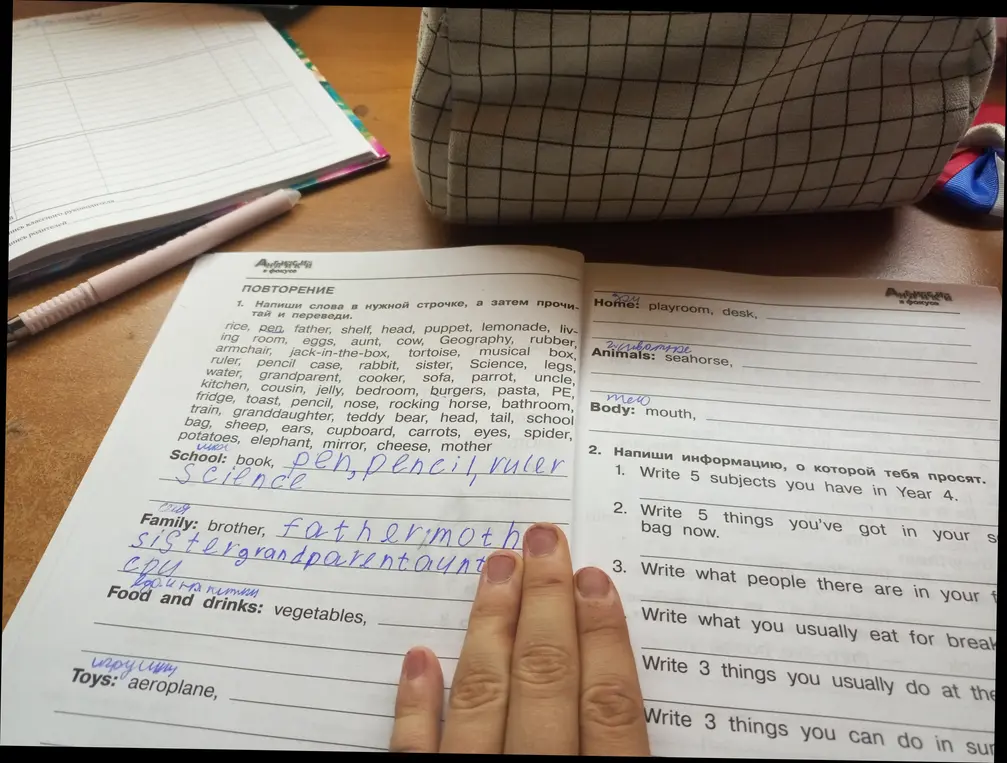 пись классного руководителя
пись родителей
Английский
в фокусе
ПОВТОРЕНИЕ
1. Напиши слова в нужной строчке, а затем прочи-
тай и переведи.
rice, pen, father, shelf, head, puppet, lemonade, liv-
ing room, eggs, aunt, cow, Geography, rubber,
armchair, jack-in-the-box, tortoise, musical box,
ruler, pencil case, rabbit, sister, Science, legs,
water, grandparent, cooker, sofa, parrot, uncle,
kitchen, cousin, jelly, bedroom, burgers, pasta, PE,
fridge, toast, pencil, nose, rocking horse, bathroom,
train, granddaughter, teddy bear, head, tail, school
bag, sheep, ears, cupboard, carrots, eyes, spider,
potatoes, elephant, mirror, cheese, mother
School: book, pen, pencil, ruler
Science
Family: brother, father, moth
sister grandparent aunt
еда и напитки
Food and drinks: vegetables,
игрушки
Toys: aeroplane,
Английский
в фокусе
Home: playroom, desk,
Animals: seahorse,
тело
Body: mouth,
2. Напиши информацию, о которой тебя просят.
1. Write 5 subjects you have in Year 4.
2. Write 5 things you've got in your s
bag now.
3. Write what people there are in your f
Write what you usually eat for break
Write 3 things you usually do at the
Write 3 things you can do in sum